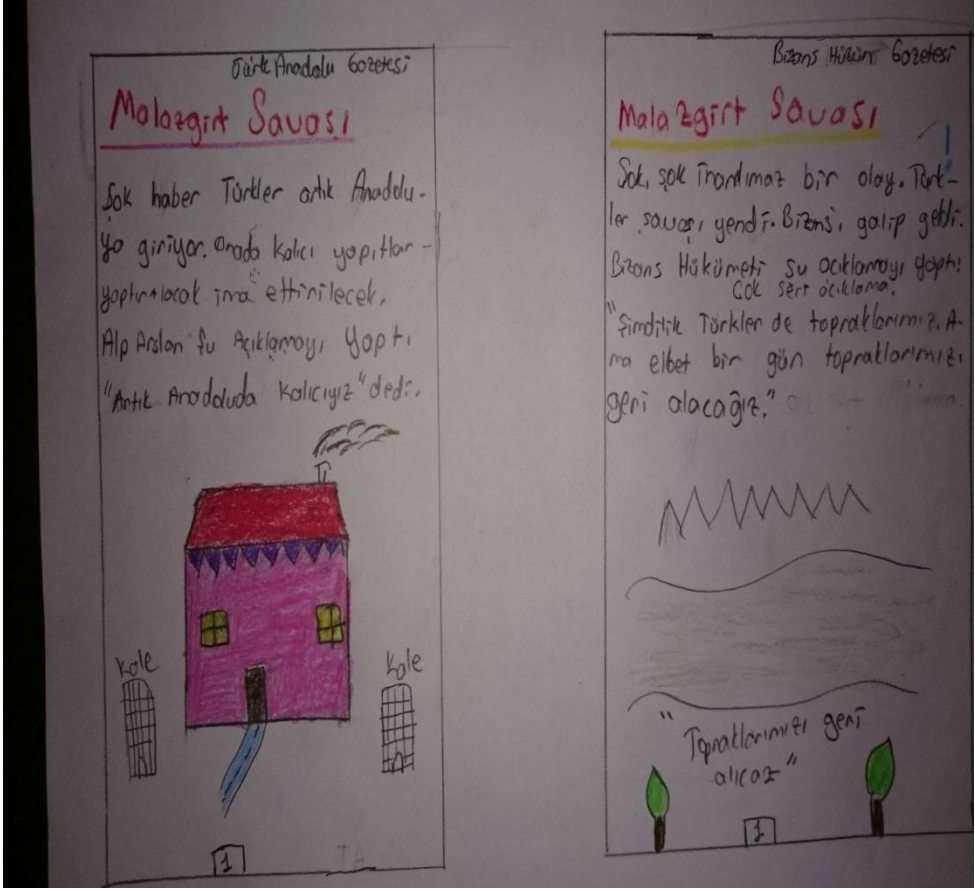 Türk Anadolu Gozetesi
Malazgirt Savaşı
Şok haber Türkler artık Anadolu-
ya giriyor. Orada kalıcı yapıtlar-
yaptırılacak ima ettirilecek.
Alp Arslan şu Açıklamayı Yaptı
"Artık Anadoluda kalıcıyız" dedi.
Kale
Kale
1
Bizans Hüzün Gozetesi
Malazgirt Savaşı
!
Şok, şok İnandımaz bir olay. Türk-
ler savaşı yendi. Bizans'ı galip geldi.
Bizans Hükümeti şu açıklamayı yaptı!
Çok sert açıklama.
"Şimdilik Türkler de topraklarımız. A-
ma elbet bir gün topraklarımızı
geri alacağız."
"Topraklarımızı geri
alıcaz"
1